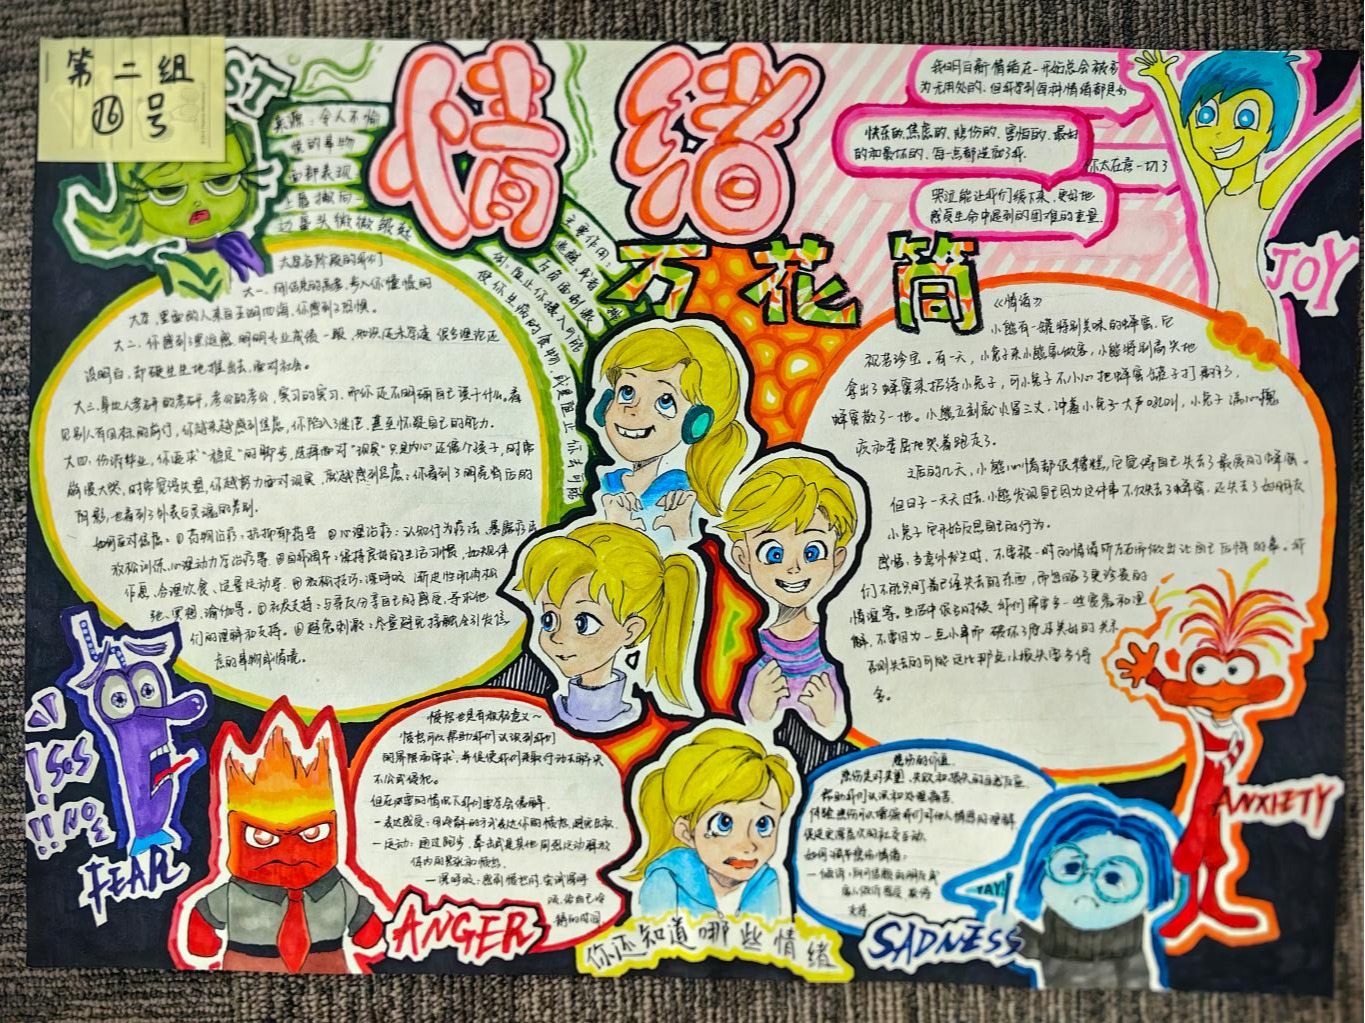 第二组
⑯号
情绪
万花筒
来源：令人不愉
悦的事物
面部表现：
上唇撇向一
边眉头微微皱起
主要作用：
逃避或者
反向面刺激
例：阻止你摄入可能
使你生病的食物，或是阻止你去可能
我明白新情绪在一开始总会被视
为无用处的，但
快乐的，焦虑的，悲伤的，害怕的，最好
的和最坏的，每一点都造就了我
你太在意一切了
哭泣能让我们缓下来，更好地
感受生命中遇到的困难的重量
JOY
大学各阶段的我们
大一、刚结束的高考，步入你憧憬的
大学，里面的人来自五湖四海，你感到了恐惧。
大二、你感到了
没明白，却硬生生地推出去，面对社会。
大三、身边人考研的考研，考公的考公，实习的实习，而你还不明确自己该干什么，看
见别人有目标的前行，你越来越感到焦虑，你陷入了迷茫，甚至怀疑自己的能力。
大四、你将毕业，你追求“稳定”的脚步，选择面对“现实”只是内心还像个孩子，时常
崩溃大哭，时常觉得失望，你越努力面对现实，就越感到焦虑，你看到了明亮背后的
阴影，也看到了外表与灵魂的差别。
如何应对焦虑：①药物治疗：抗抑郁药等 ②心理治疗：认知行为疗法、暴露疗法
放松训练、心理动力学治疗等 ③自我调节：保持良好的生活习惯，如规律
作息、合理饮食、适量运动等。④放松技巧：深呼吸、渐进性肌肉松
弛、冥想、瑜伽等。⑤社交支持：与亲友分享自己的感受，寻求他
们的理解和支持。⑥避免刺激：尽量避免接触会引发焦
虑的事物或情境。
《情绪》
小熊有一罐特别美味的蜂蜜，它
视若珍宝。有一天，小兔子来小熊家做客，小熊特别高兴地
拿出了蜂蜜来招待小兔子，可小兔子不小心把蜂蜜罐子打翻了，
蜂蜜散了一地。小熊立刻就火冒三丈，冲着小兔子大声吼叫，小兔子满心愧
疚，委屈地哭着跑走了。
之后的几天，小熊心情都很糟糕，它觉得自己失去了最爱的蜂蜜。
但日子一天天过去，小熊发现自己因为这件事不仅失去了蜂蜜，还失去了好朋友
小兔子，它开始反思自己的行为。
感悟：当意外发生时，不要被一时的情绪所左右而做出让自己后悔的事。我
们不能只盯着已经失去的东西，而忽略了更珍贵的
情谊等。生活中很多时候，我们需要多一些宽容和理
解，不要因为一点小事而破坏了原本美好的关系
否则失去的可能远比那点小损失要多得
多。
!!SOS
!!NO
FEAR
愤怒也是有积极意义～
愤怒可以帮助我们认识到我们
的界限和需求，并促使我们采取行动去解决
不公或侵犯。
但在必要的情况下我们要学会缓解。
一表达感受：用冷静的方式表达你的愤怒，避免
一运动：通过跑步、拳击或是其他剧烈运动释放
体内的紧张和愤怒。
一深呼吸：感到愤怒时，尝试深呼
吸，给自己冷
静的时间
ANGER
你还知道哪些情绪
悲伤的价值
悲伤是对失望、失败和损失的自然反应，
帮助我们认识和处理痛苦。
体验悲伤可以增强我们对他人情感的理解，
促进更深层次的社交互动。
如何调节悲伤情绪：
SADNESS
YAY!
ANXIETY